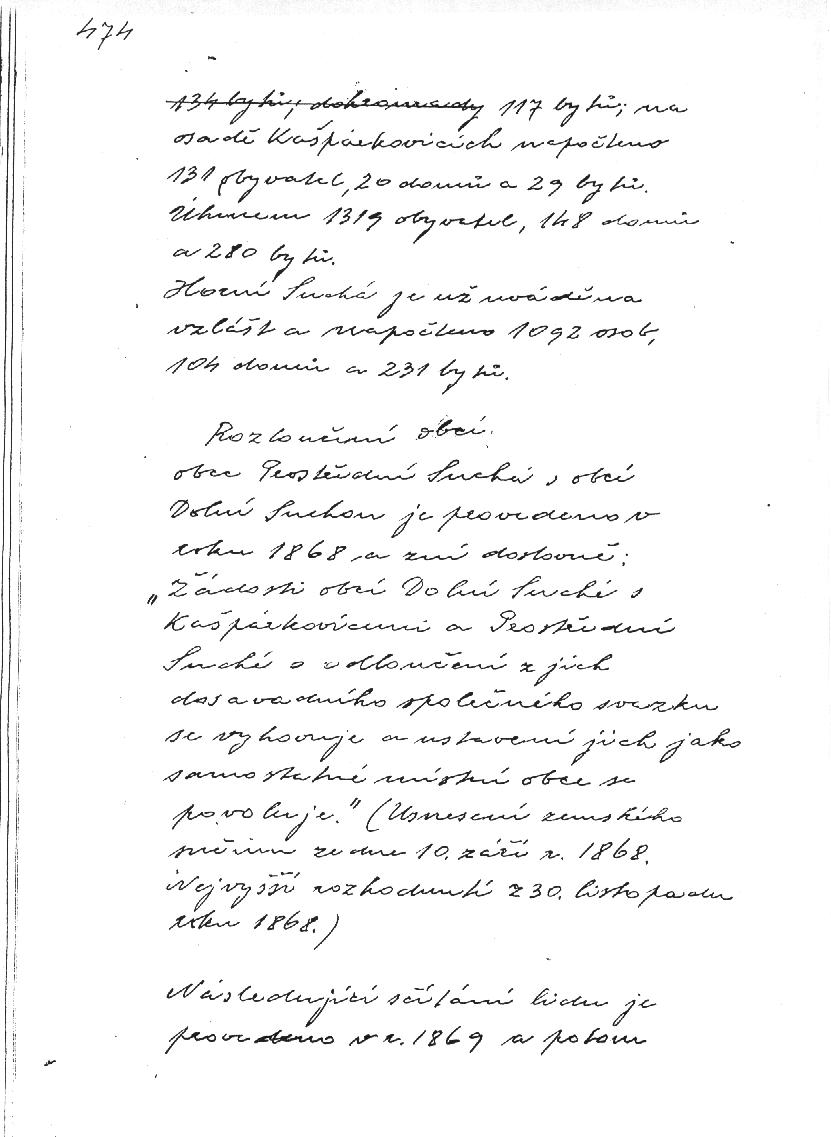 474
134 bytů; dohromady 117 bytů; na
osadě Kašpárkovicích napočteno
131 obyvatel, 20 domů a 29 bytů.
Úhrnem 1319 obyvatel, 148 domů
a 280 bytů.
Horní Suchá je už uváděna
vzlášt a napočteno 1092 osob,
104 domů a 231 bytů.
Rozloučení obcí.
obce Prostřední Suchá s obcí
Dolní Suchou je provedeno v
roku 1868 a zní doslovně:
„Žádosti obcí Dolní Suché s
Kašpárkovicemi a Prostřední
Suché o odloučení z jich
dosavadního společného svazku
se vyhovuje a ustavení jich jako
samostatné místní obce se
povoluje." (Usnesení zemského
sněmu ze dne 10. září r. 1868.
Nejvyšší rozhodnutí z 30. listopadu
roku 1868.)
Následující sčítání lidu je
provedeno v r. 1869 a potom